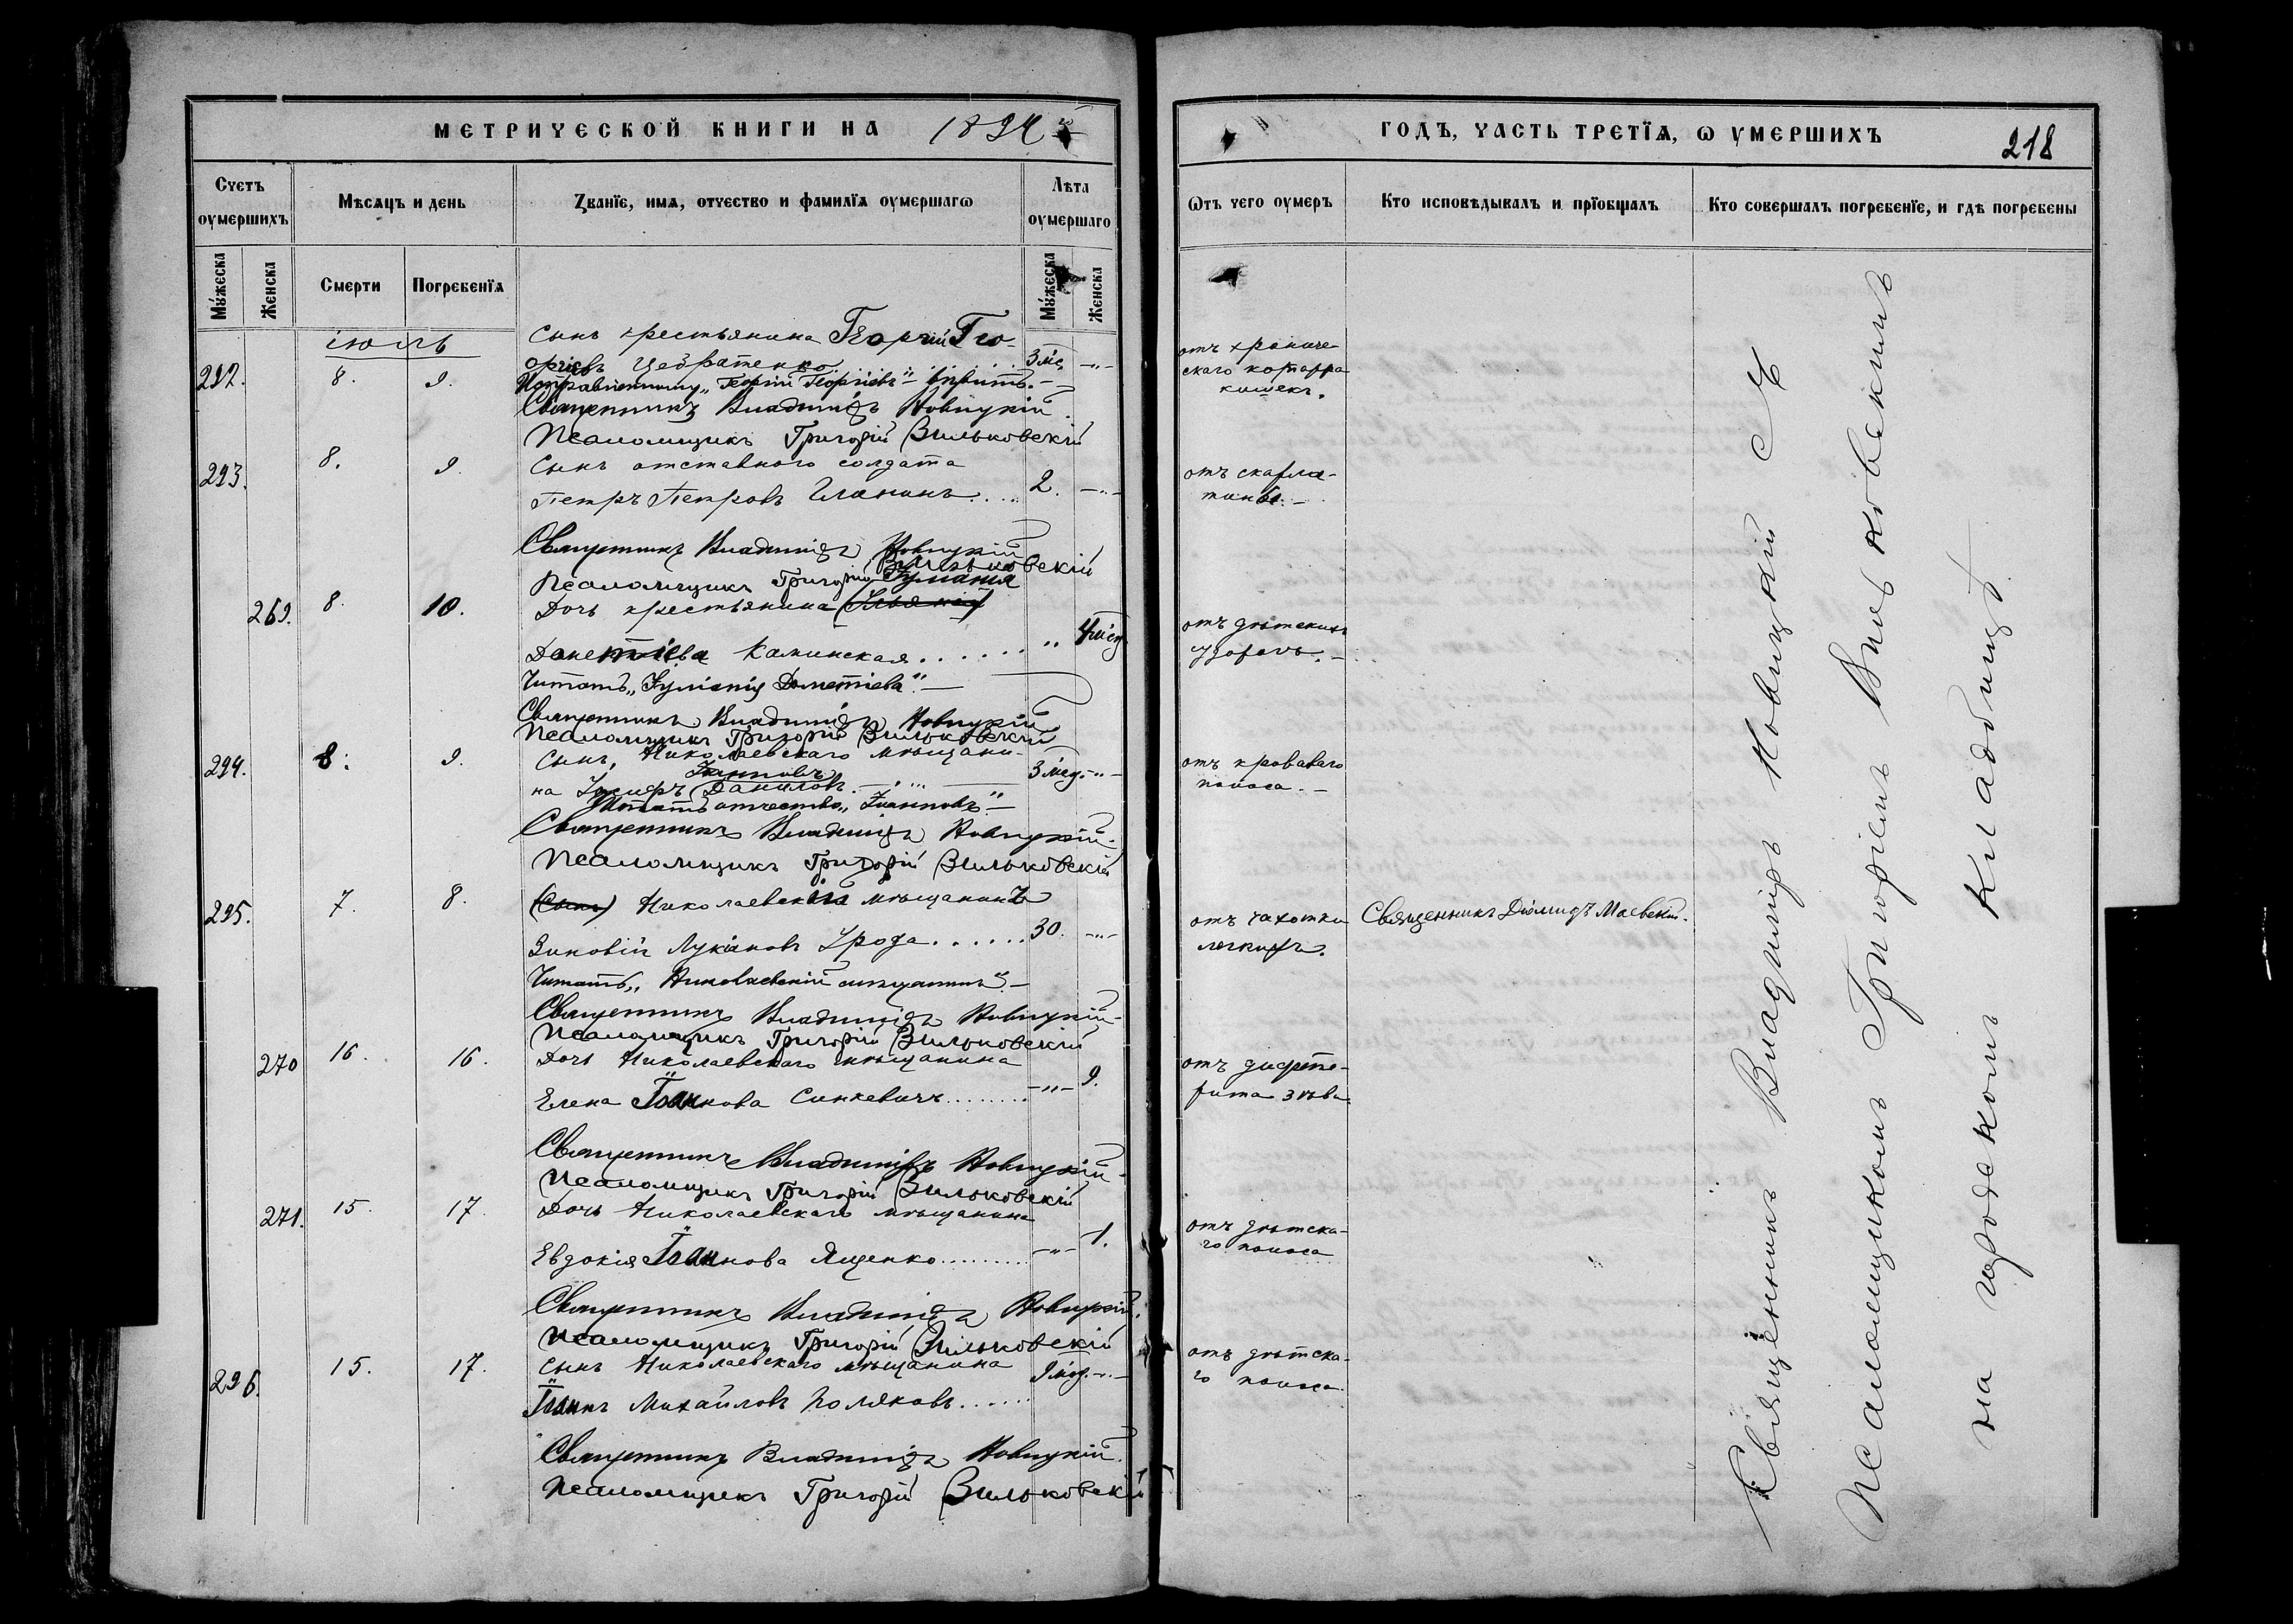 МЕТРИЧЕСКОЙ КНИГИ НА 1894
ГОДЪ, ЧАСТЬ ТРЕТЇѦ, Ѡ УМЕРШИХЪ
218
Счетъ оумершихъ
Мѣсѧцъ и день
Званїе, имѧ, отчество и фамилїѧ оумершагѡ
Лѣта оумершаго
Ѿтъ чего оумеръ
Кто исповѣдывалъ и прїобщалъ
Кто совершалъ погребенїе, и гдѣ погребены
Мужеска
Женска
Смерти
Погребенїѧ
Мужеска
Женска
іюль
292. 8. 9.
Сынъ крестьянина Георгій Гео-
ргіевъ 3 мѣс.
Поправленному „Георгій Георгіевъ“ вѣрить.
отъ хрониче-
скаго катарра
кишекъ.
Священникъ Владиміръ Новицкій
Псаломщикъ Григорій Вильковскій
293. 8. 9.
Сынъ отставного солдата
Петръ Петровъ 2.
отъ скарла-
тины.
Священникъ Владиміръ Новицкій
Псаломщикъ Григорій Вильковскій
269. 8. 10.
Дочь крестьянина
Дометіева Каминская 4 мѣс.
отъ дѣтскихъ
Читать „Іуліанія Дометіева“
Священникъ Владиміръ Новицкій
Псаломщикъ Григорій Вильковскій
294. 8. 9.
Сынъ Николаевскаго мѣщани-
Іоанновъ
на Іосифъ Даниловъ 3 мѣс.
отъ кроваваго
поноса.
Читать отчество „Іоанновъ“
Священникъ Владиміръ Новицкій
Псаломщикъ Григорій Вильковскій
295. 7. 8.
(Сынъ) Николаевскій мѣщанинъ
Зиновій Лукіановъ Урода 30.
отъ чахотки
легкихъ.
Священникъ Діомидъ Маевскій.
Читать „Николаевскій мѣщанинъ“
Священникъ Владиміръ Новицкій
Псаломщикъ Григорій Вильковскій
270 16. 16.
Дочь Николаевскаго мѣщанина
Елена Іоаннова Синкевичъ 9.
отъ дифте-
рита зѣва
Священникъ Владиміръ Новицкій
Псаломщикъ Григорій Вильковскій
271. 15. 17.
Дочь Николаевскаго мѣщанина
Евдокія Іоаннова Ященко 1.
отъ дѣтска-
го поноса
Священникъ Владиміръ Новицкій
Псаломщикъ Григорій Вильковскій
296. 15. 17.
Сынъ Николаевскаго мѣщанина 9 мѣс.
Іоаннъ Михайловъ Поляковъ
отъ дѣтска-
го поноса.
Священникъ Владиміръ Новицкій
Псаломщикъ Григорій Вильковскій
Священникъ Владиміръ Новицкій съ
Псаломщикомъ Григоріемъ Вильковскимъ
на городскомъ кладбищѣ